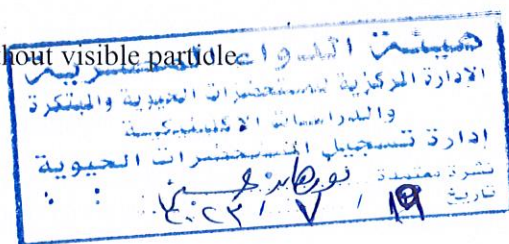 hout visible particle
هيئة الدواء المصرية
الإدارة المركزية للمستحضرات الحيوية والمبتكرة
والدراسات الإكلينيكية
إدارة تسجيل المستحضرات الحيوية
نشرة معتمدة نورهان
تاريخ ١٩ / ٧ / ٢٠٢٣